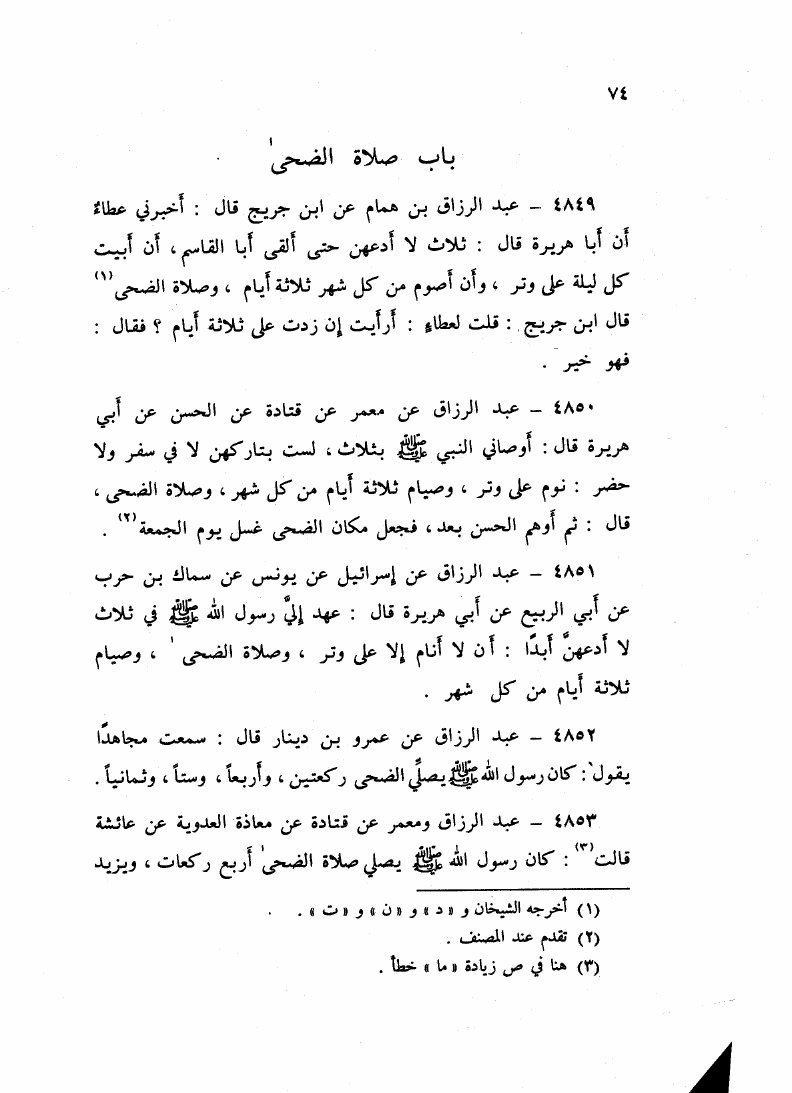 ٧٤
باب صلاة الضحىٰ
٤٨٤٩ – عبد الرزاق بن همام عن ابن جريج قال : أخبرني عطاءٌ
أن أبا هريرة قال : ثلاث لا أدعهن حتى ألقى أبا القاسم ، أن أبيت
كل ليلة على وتر ، وأن أصوم من كل شهر ثلاثة أيام ، وصلاة الضحى(١)
قال ابن جريج : قلت لعطاءٍ : أرأيت إن زدت على ثلاثة أيام ؟ فقال :
فهو خير .
٤٨٥٠ – عبد الرزاق عن معمر عن قتادة عن الحسن عن أبي
هريرة قال : أوصاني النبي ﷺ بثلاث ، لست بتاركهن لا في سفر ولا
حضر : نوم على وتر ، وصيام ثلاثة أيام من كل شهر ، وصلاة الضحى ،
قال : ثم أوهم الحسن بعد ، فجعل مكان الضحى غسل يوم الجمعة(٢) .
٤٨٥١ – عبد الرزاق عن إسرائيل عن يونس عن سماك بن حرب
عن أبي الربيع عن أبي هريرة قال : عهد إليَّ رسول الله ﷺ في ثلاث
لا أدعهنَّ أبدًا : أن لا أنام إلا على وتر ، وصلاة الضحىٰ ، وصيام
ثلاثة أيام من كل شهر .
٤٨٥٢ – عبد الرزاق عن عمرو بن دينار قال : سمعت مجاهدًا
يقول : كان رسول الله ﷺ يصلِّي الضحى ركعتين ، وأربعاً ، وستاً ، وثمانياً .
٤٨٥٣ – عبد الرزاق ومعمر عن قتادة عن معاذة العدوية عن عائشة
قالت(٣) : كان رسول الله ﷺ يصلي صلاة الضحىٰ أربع ركعات ، ويزيد
(١) أخرجه الشيخان و « د » و « ن » و « ت » .
(٢) تقدم عند المصنف .
(٣) هنا في ص زيادة « ما » خطأ .